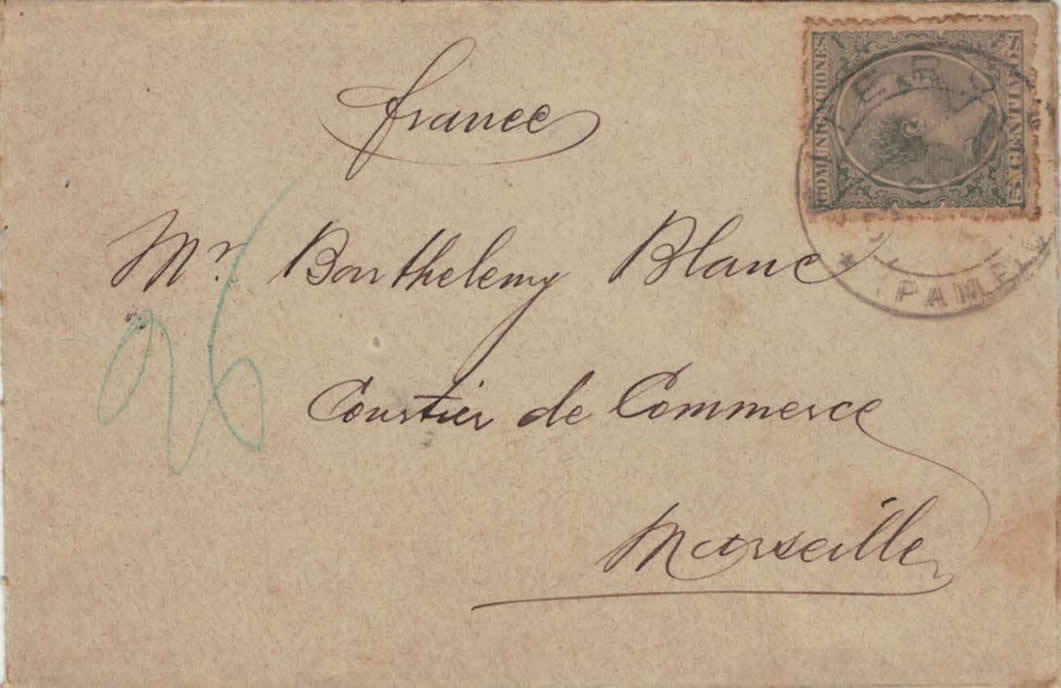 france
Mr. Barthelemy Blanc
Courtier de Commerce
Marseille
26
COMUNICACIONES
5 CENTIMOS